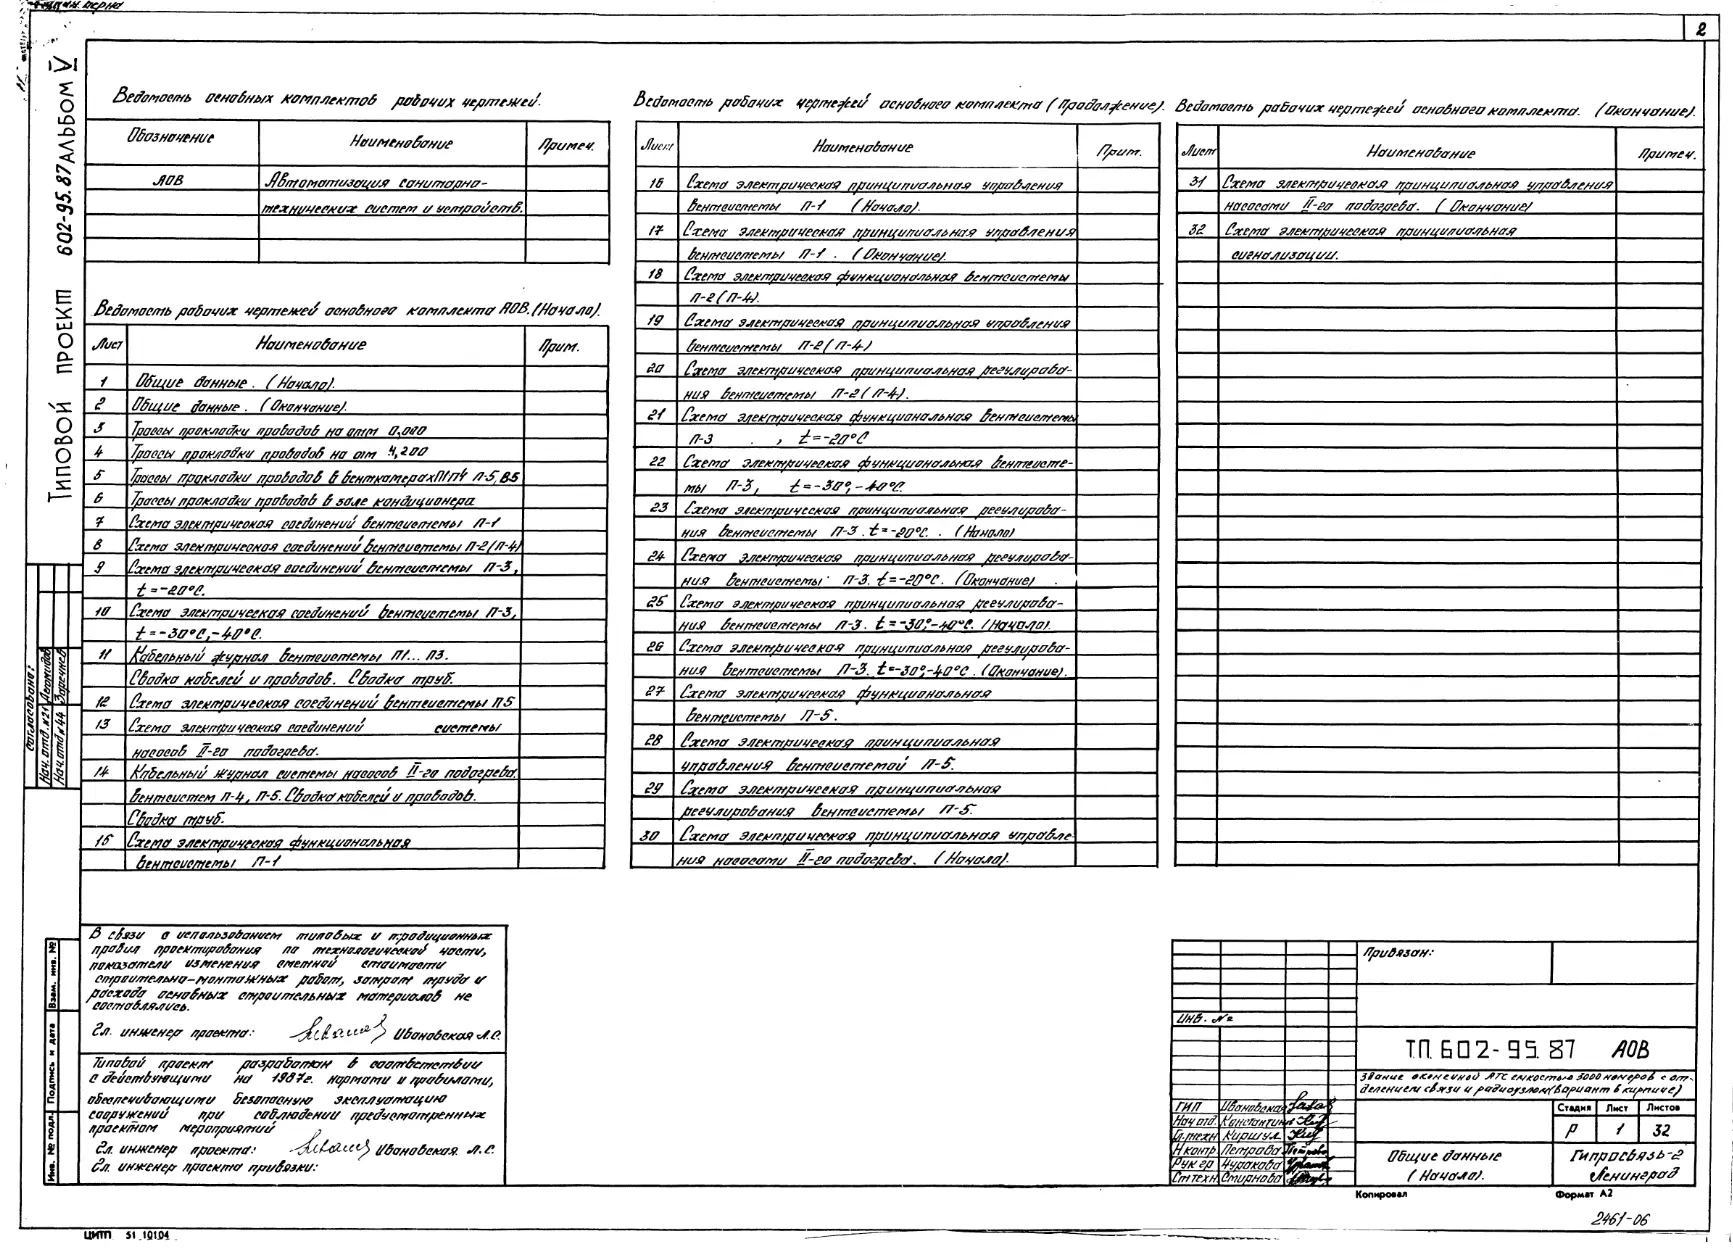 2
Типовой проект 602-95.87 Альбом V
Ведомость основных комплектов рабочих чертежей.
Обозначение Наименование Примеч.
АОВ Автоматизация санитарно-
технических систем и устройств.
Ведомость рабочих чертежей основного комплекта АОВ. (Начало).
Лист Наименование Прим.
1 Общие данные. (Начало).
2 Общие данные. (Окончание).
3 Трассы прокладки проводов на отм 0,000
4 Трассы прокладки проводов на отм 4,200
5 Трассы прокладки проводов в венткамерах П1П4 П-5, В5
6 Трассы прокладки проводов в зале кондиционера
7 Схема электрическая соединений вентсистемы П-1
8 Схема электрическая соединений вентсистемы П-2 (П-4)
9 Схема электрическая соединений вентсистемы П-3,
t=-20°С.
10 Схема электрическая соединений вентсистемы П-3,
t=-30°С,-40°С.
11 Кабельный журнал вентсистемы П1...П3.
Сводка кабелей и проводов. Сводка труб.
12 Схема электрическая соединений вентсистемы П5
13 Схема электрическая соединений системы
насосов II-го подогрева.
14 Кабельный журнал системы насосов II-го подогрева,
вентсистем П-4, П-5. Сводка кабелей и проводов.
Сводка труб.
15 Схема электрическая функциональная
вентсистемы П-1
Ведомость рабочих чертежей основного комплекта (Продолжение).
Лист Наименование Прим.
16 Схема электрическая принципиальная управления
вентсистемы П-1 (Начало).
17 Схема электрическая принципиальная управления
вентсистемы П-1. (Окончание).
18 Схема электрическая функциональная вентсистемы
П-2 (П-4).
19 Схема электрическая принципиальная управления
вентсистемы П-2 (П-4)
20 Схема электрическая принципиальная регулирова-
ния вентсистемы П-2 (П-4).
21 Схема электрическая функциональная вентсистемы
П-3 , t=-20°С
22 Схема электрическая функциональная вентсисте-
мы П-3, t=-30°,-40°С.
23 Схема электрическая принципиальная регулирова-
ния вентсистемы П-3. t=-20°С. (Начало)
24 Схема электрическая принципиальная регулирова-
ния вентсистемы П-3. t=-20°С. (Окончание)
25 Схема электрическая принципиальная регулирова-
ния вентсистемы П-3. t=-30°,-40°С. (Начало).
26 Схема электрическая принципиальная регулирова-
ния вентсистемы П-3. t=-30°,-40°С. (Окончание).
27 Схема электрическая функциональная
вентсистемы П-5.
28 Схема электрическая принципиальная
управления вентсистемой П-5.
29 Схема электрическая принципиальная
регулирования вентсистемы П-5.
30 Схема электрическая принципиальная управле-
ния насосами II-го подогрева. (Начало).
Ведомость рабочих чертежей основного комплекта. (Окончание).
Лист Наименование Примеч.
31 Схема электрическая принципиальная управления
насосами II-го подогрева. (Окончание)
32 Схема электрическая принципиальная
сигнализации.
Согласовано:
Нач. отд. №21 Леонидов
Нач. отд. №44 Заренчев
В связи с использованием типовых и традиционных
правил проектирования по технологической части,
показатели изменения сметной стоимости
строительно-монтажных работ, затрат труда и
расхода основных строительных материалов не
составлялись.
Гл. инженер проекта: Ивановская Л.С.
Типовой проект разработан в соответствии
с действующими на 1987г. нормами и правилами,
обеспечивающими безопасную эксплуатацию
сооружений при соблюдении предусмотренных
проектом мероприятий
Гл. инженер проекта: Ивановская Л.С.
Гл. инженер проекта привязки:
Взам. инв. №
Подпись и дата
Инв. № подл.
Привязан:
Инв. №
ТП. 602-95.87 АОВ
Здание оконечной АТС емкостью 3000 номеров с от-
делением связи и радиоузлом (Вариант в кирпиче)
ГИП Ивановская
Нач отд. Константин
Гл. техн Киршул
Н контр Петрова
Рук гр Чуракова
Ст техн Смирнова
Стадия Лист Листов
Р 1 32
Общие данные
(Начало).
Гипросвязь-2
Ленинград
Копировал Формат А2
2461-06
ЦИТП 51.10104